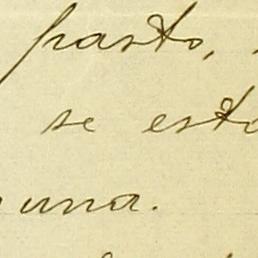 pasto,
se esto
una.